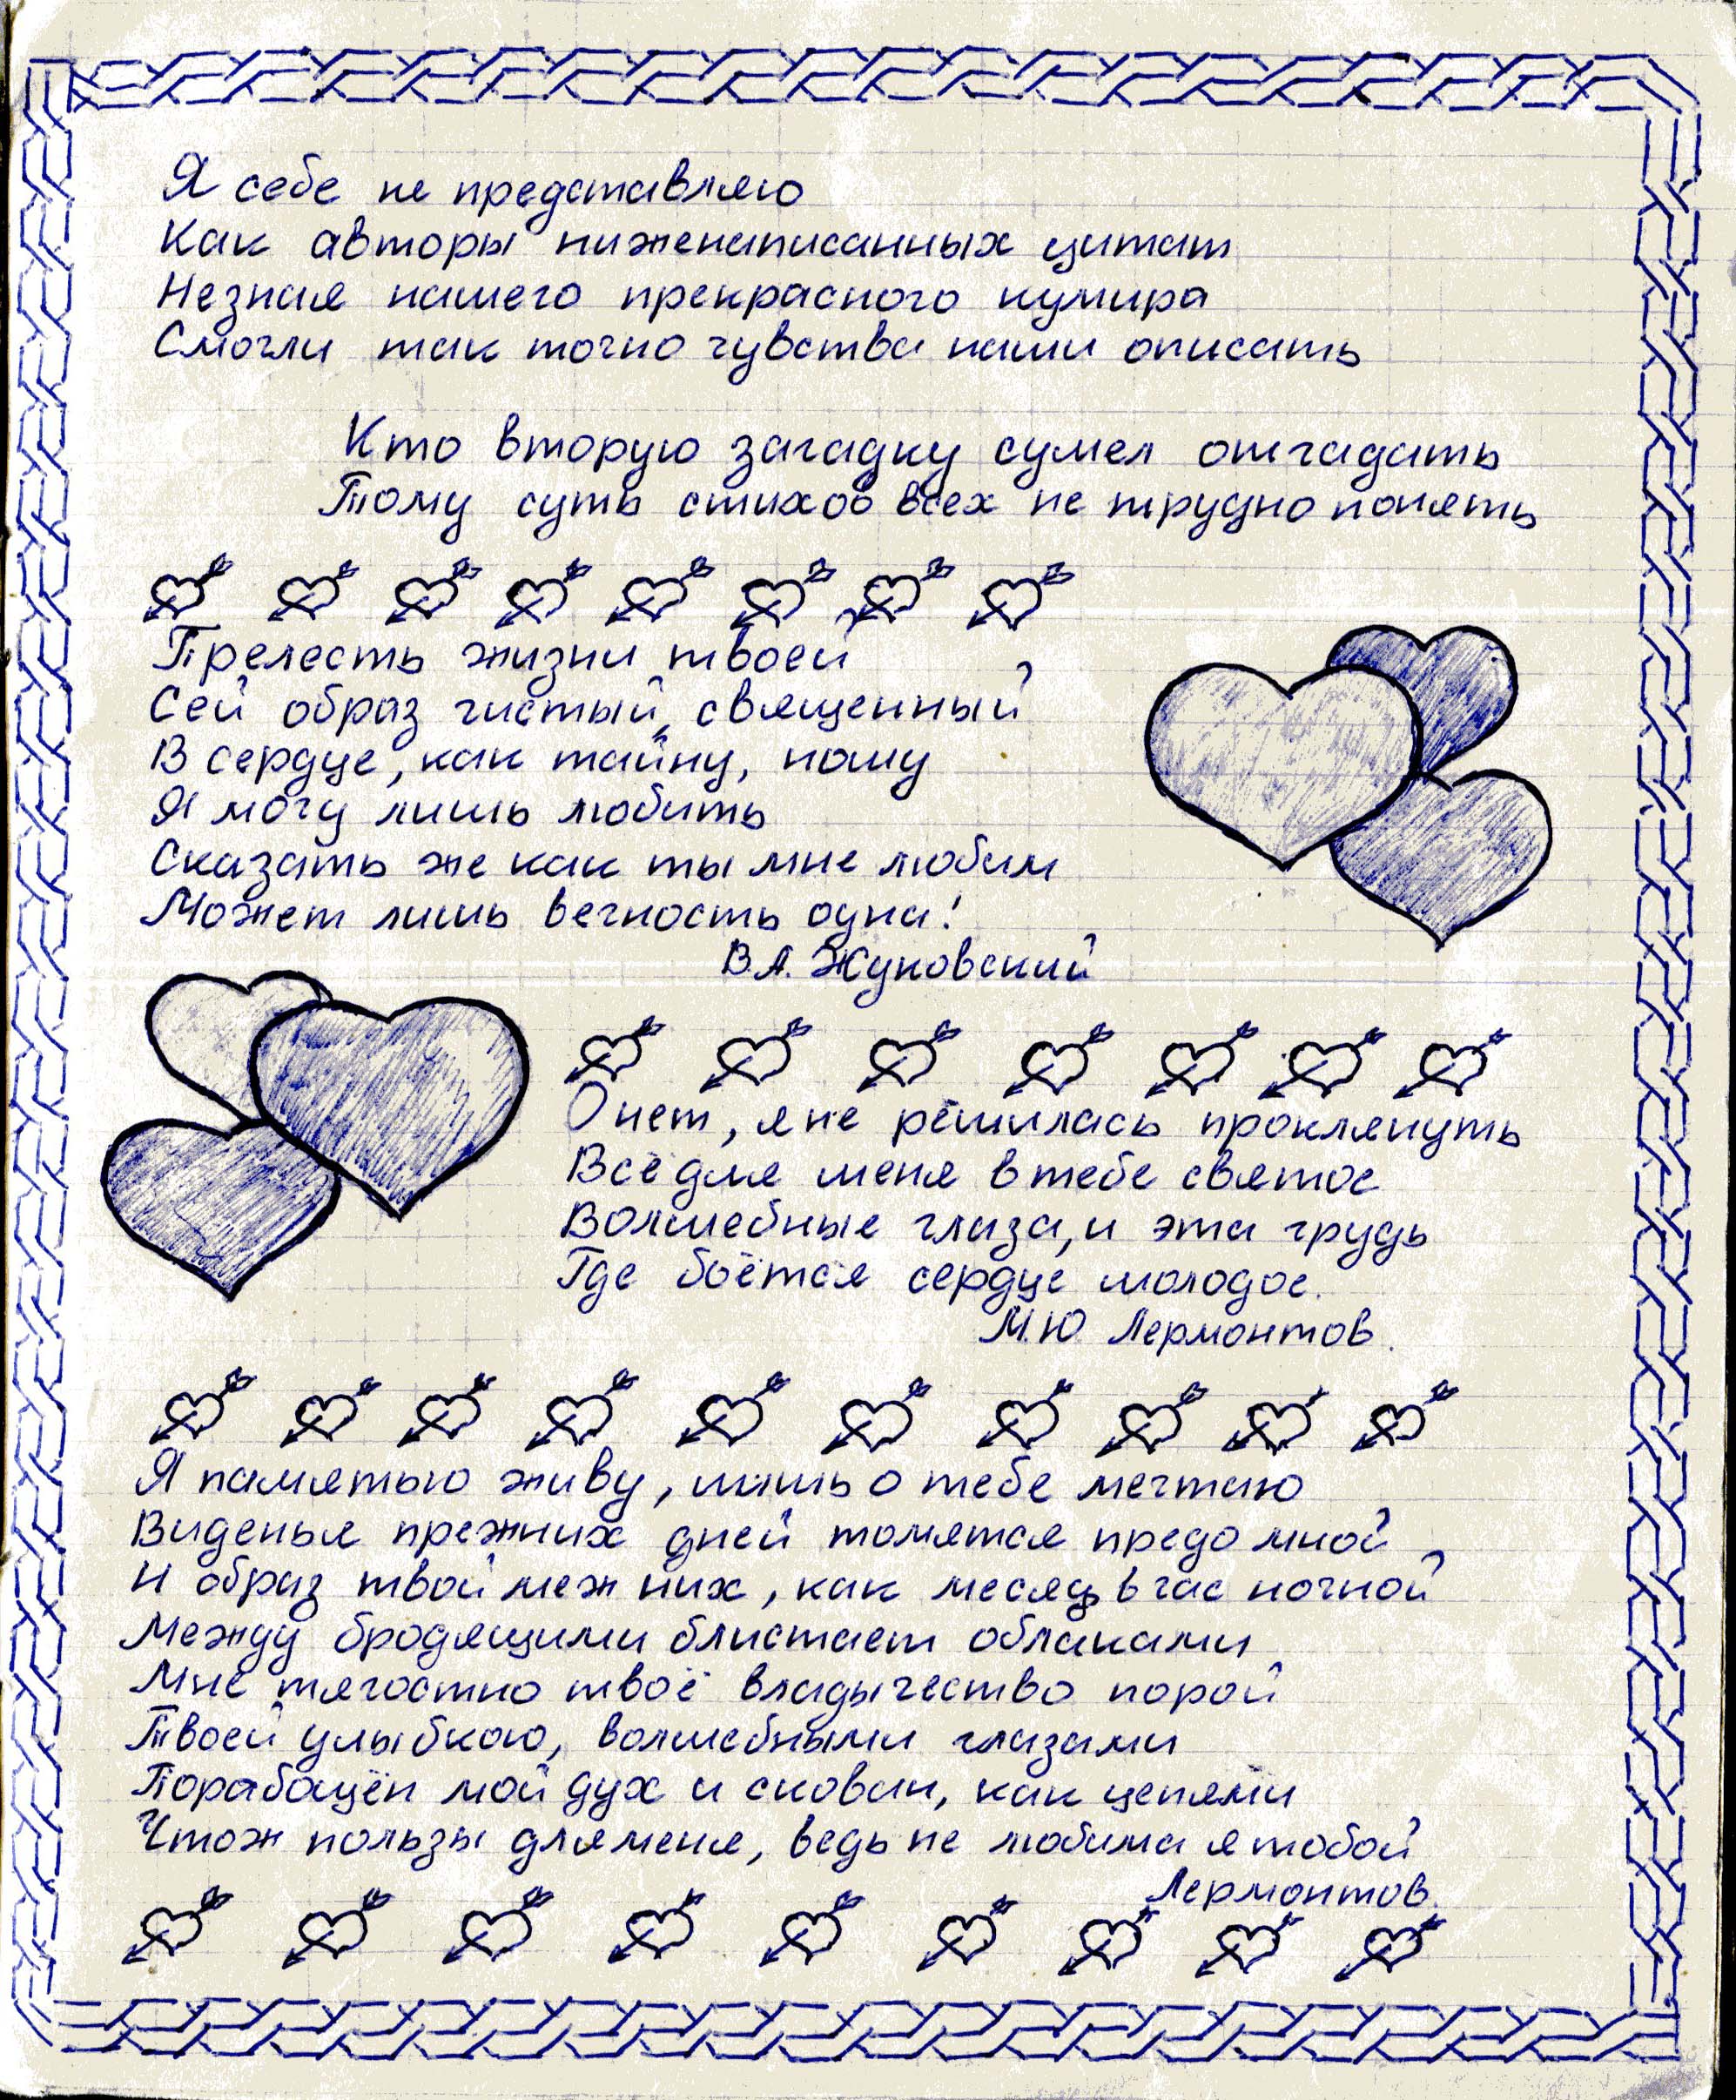 Я себе не представляю
Как авторы ниженаписанных цитат
Незная нашего прекрасного кумира
Смогли так точно чувства наши описать
Кто вторую загадку сумел отгадать
Тому суть стихов всех не трудно понять
Прелесть жизни твоей
Сей образ чистый, священный
В сердце, как тайну, ношу
Я могу лишь любить
Сказать же как ты мне любим
Может лишь вечность одна!
В.А. Жуковский
О нет, я не решилась проклянуть
Всё для меня в тебе святое
Волшебные глаза, и эта грудь
Где бьётся сердце молодое.
М.Ю. Лермонтов.
Я памятью живу, лишь о тебе мечтаю
Виденья прежних дней томятся предо мной
И образ твой меж них, как месяц в час ночной
Между бродящими блистает облаками
Мне тягостно твоё владычество порой
Твоей улыбкою, волшебными глазами
Порабощён мой дух и скован, как цепями
Чтож пользы для меня, ведь не любима я тобой
Лермонтов.